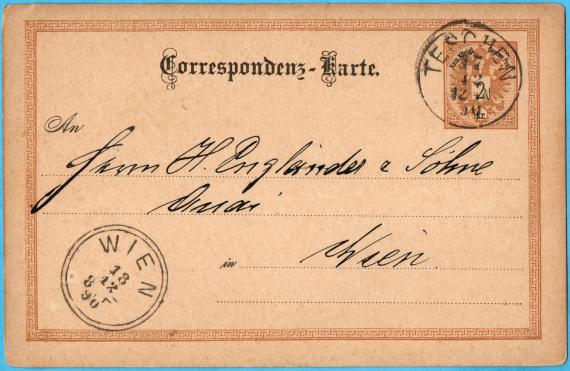 Correspondenz-Karte.
TESCHEN
17
12
90
An
Herrn H. Engländer & Söhne
Quai
in Wien
WIEN
18
12
8
90